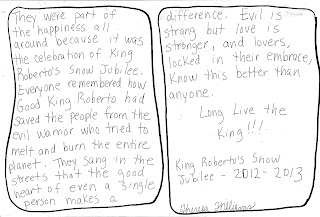 They were part of
the happiness all
around because it was
the celebration of King
Roberto's Snow Jubilee.
Everyone remembered how
Good King Roberto had
saved the people from the
evil warrior who tried to
melt and burn the entire
planet. They sang in the
streets that the good
heart of even a single
person makes a
difference. Evil is
strong but love is
stronger, and lovers,
locked in their embrace,
know this better than
anyone.
Long Live the
King!!!
King Roberto's Snow
Jubilee - 2012- 2013